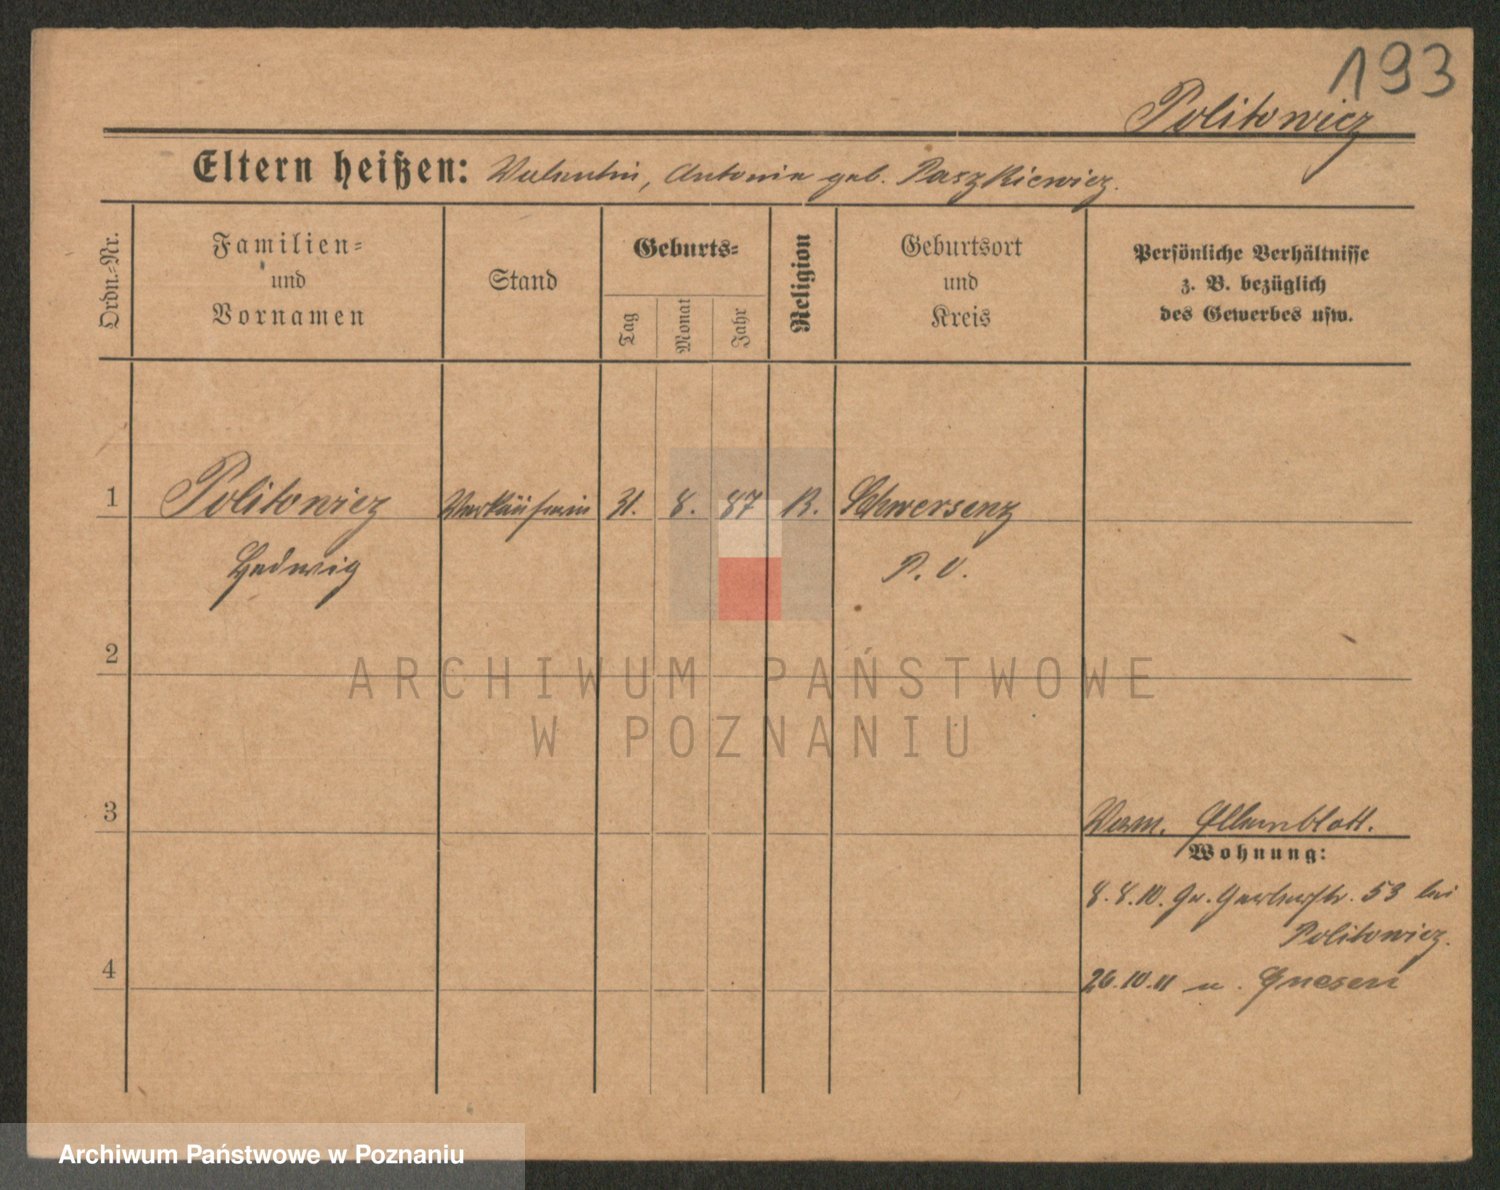 193
Politowicz
Eltern heißen: Valentin, Antonie geb. Paszkiewicz.
Ordn.-Nr.
Familien-
und
Vornamen
Stand
Geburts-
Tag
Monat
Jahr
Religion
Geburtsort
und
Kreis
Persönliche Verhältnisse
z. B. bezüglich
des Gewerbes usw.
1 Politowicz Verkäuferin 31. 8. 87 R. Schwersenz
Hedwig P. O.
2
ARCHIWUM PAŃSTWOWE
W POZNANIU
3
Verm. Elternblatt.
Wohnung:
8.8.10. Gr. Gerberstr. 53 bei
Politowicz.
4
26.10.11 n. Gnesen
Archiwum Państwowe w Poznaniu